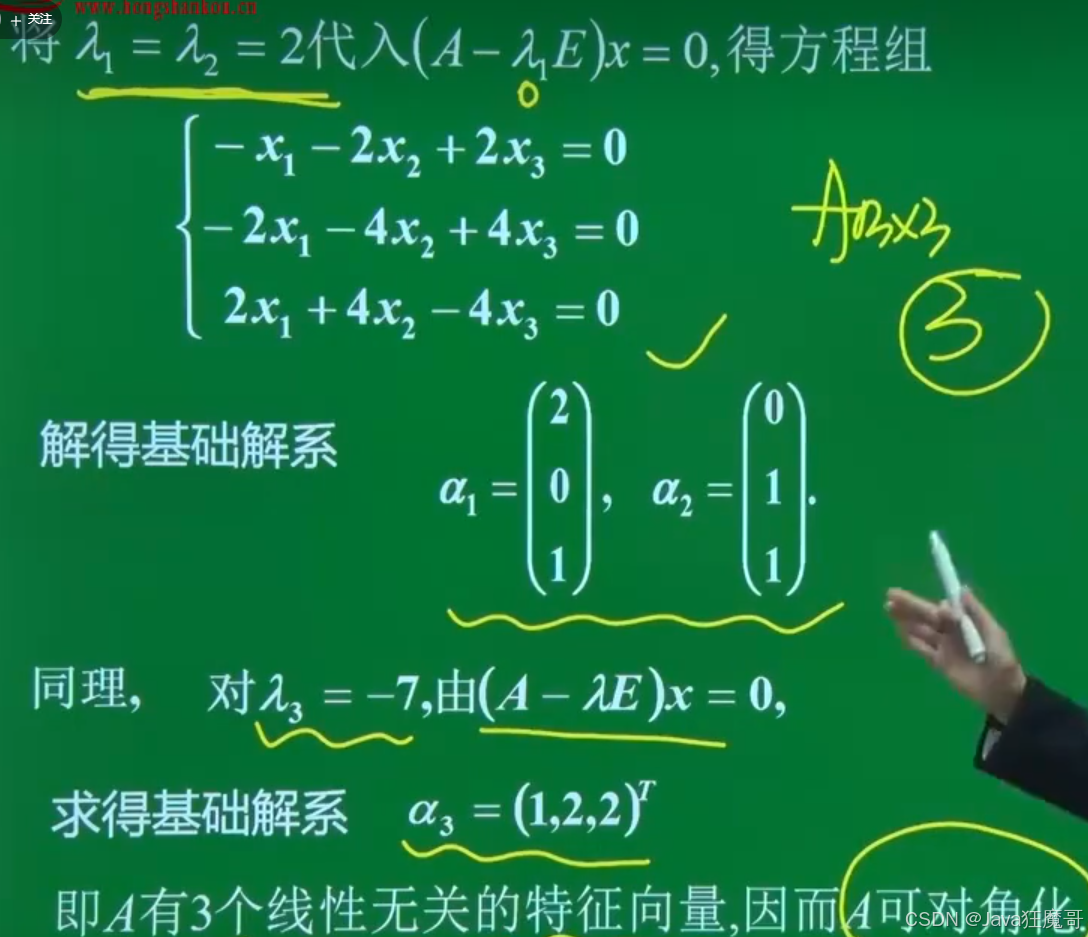 www.hongshantou.cn
+ 关注
将 λ₁ = λ₂ = 2代入(A − λ₁E)x = 0,得方程组
0
− x₁ − 2x₂ + 2x₃ = 0
− 2x₁ − 4x₂ + 4x₃ = 0
2x₁ + 4x₂ − 4x₃ = 0
3×3
3
解得基础解系 α₁ = (2 0 1), α₂ = (0 1 1).
同理, 对λ₃ = −7,由(A − λE)x = 0,
求得基础解系 α₃ = (1,2,2)ᵀ
即A有3个线性无关的特征向量,因而A可对角化.
CSDN @Java狂魔哥